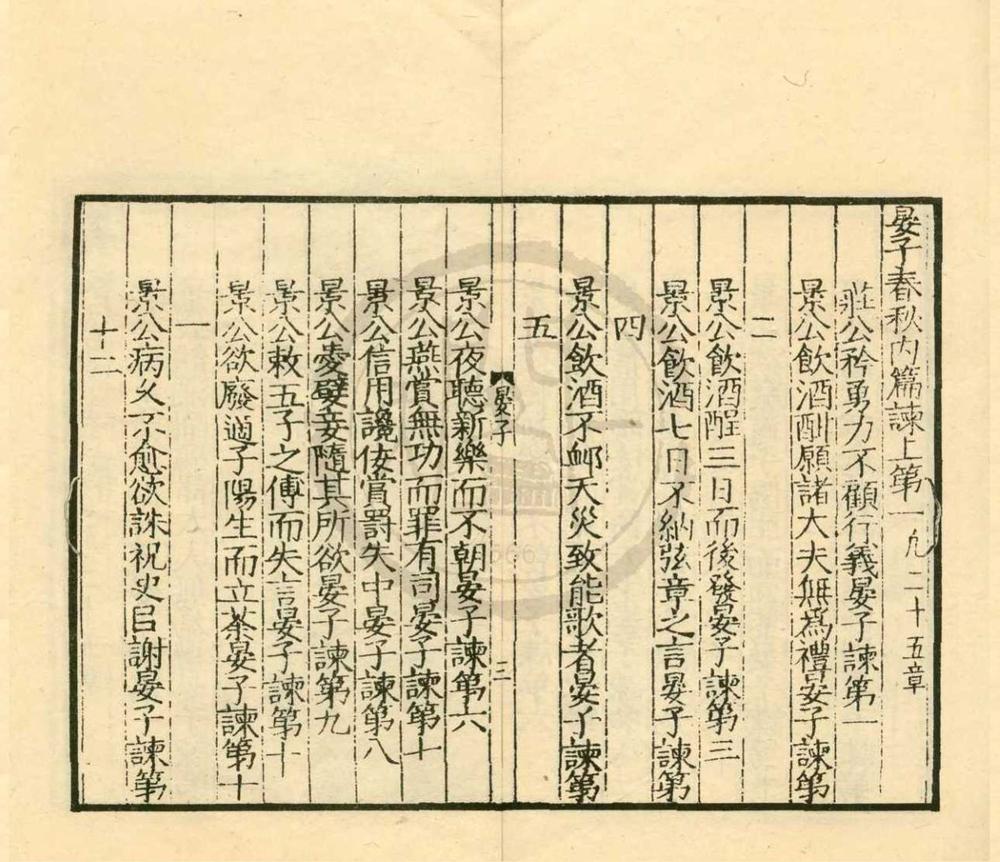 晏子春秋内篇諫上第一凡二十五章
莊公矜勇力不顧行義晏子諫第一
景公飲酒酣願諸大夫無爲禮晏子諫第
二
景公飲酒酲三日而後發晏子諫第三
景公飲酒七日不納弦章之言晏子諫第
四
景公飲酒不卹天災致能歌者晏子諫第
五
晏子
三
景公夜聽新樂而不朝晏子諫第六
景公燕賞無功而罪有司晏子諫第十
景公信用讒佞賞罰失中晏子諫第八
景公愛嬖妾隨其所欲晏子諫第九
景公敕五子之傅而失言晏子諫第十
景公欲廢適子陽生而立荼晏子諫第十
一
景公病久不愈欲誅祝史以謝晏子諫第
十二